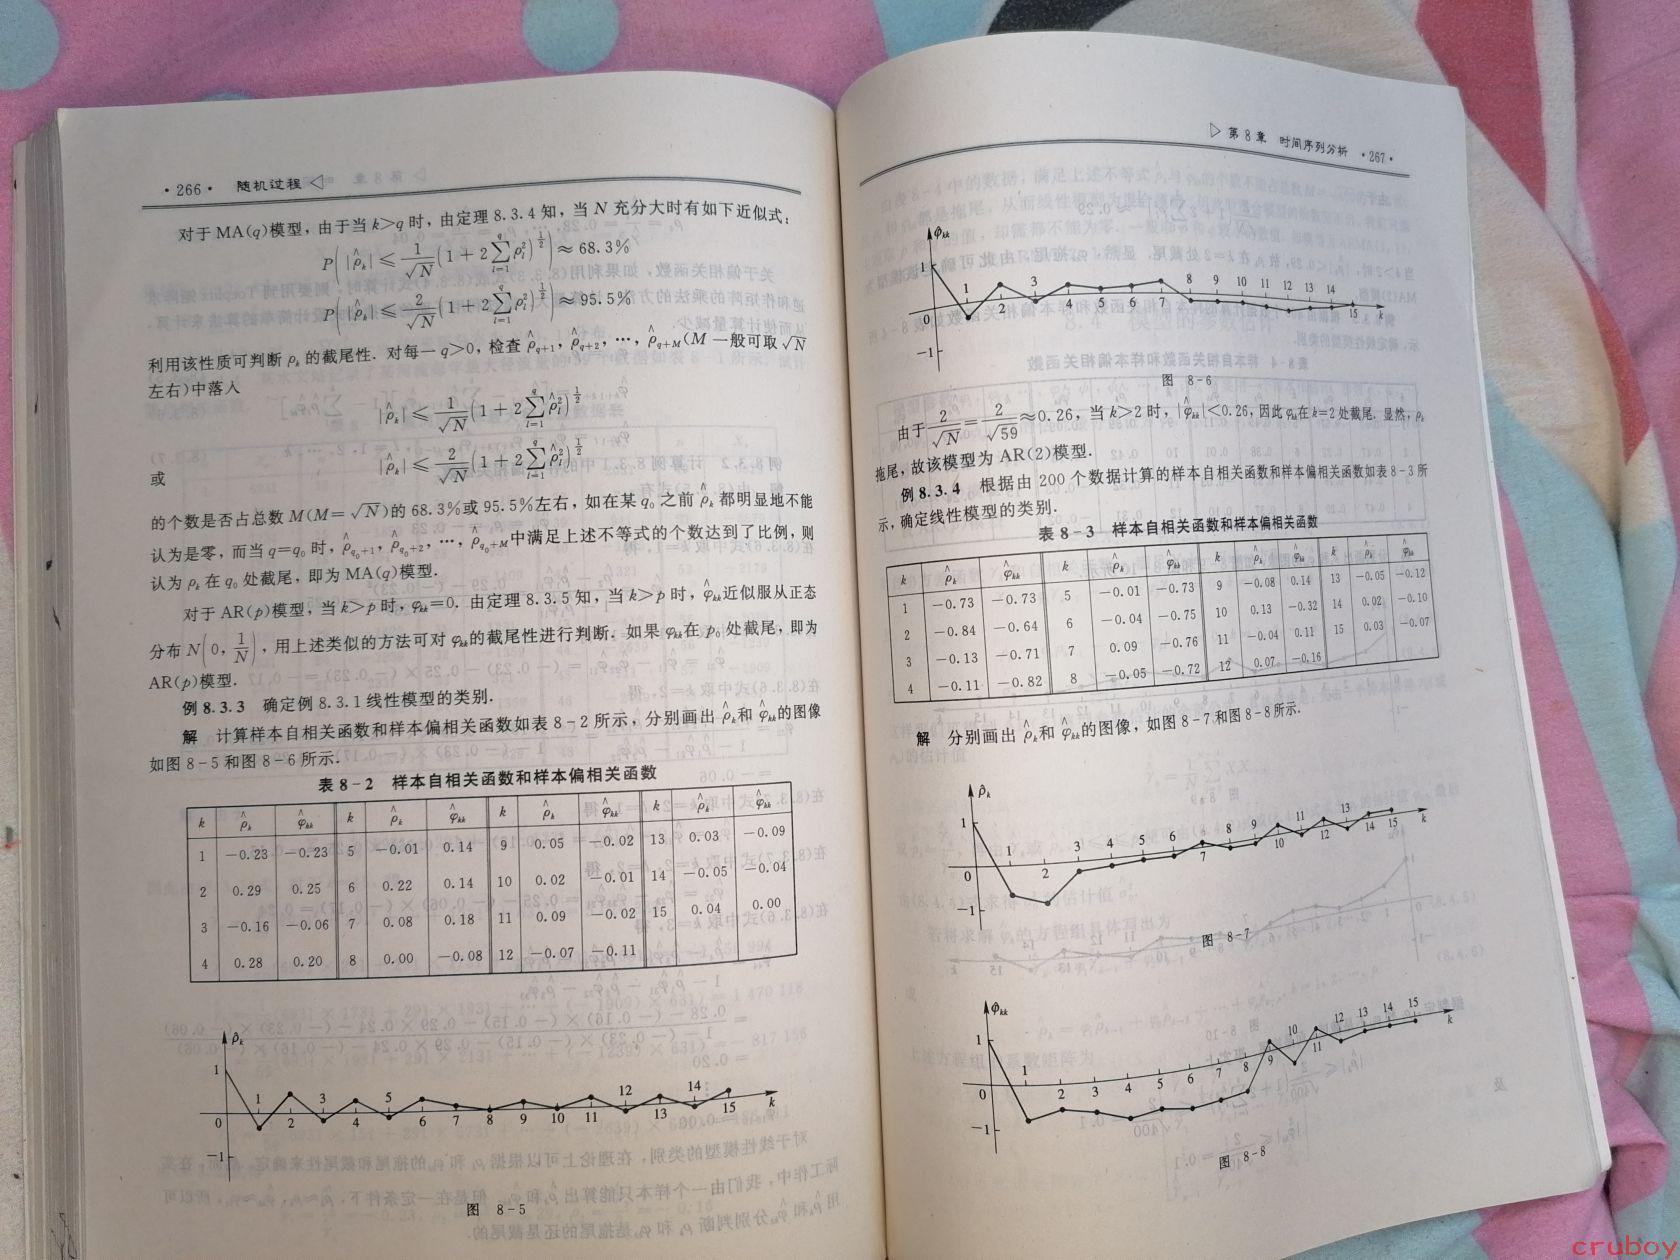 ·266· 随机过程◁
对于MA(q)模型，由于当k>q时，由定理8.3.4知，当N充分大时有如下近似式：
P(|ρ̂ₖ| ≤ 1/√N (1+2∑ᵢ₌₁^q ρ̂ᵢ²)^{1/2}) ≈ 68.3%
P(|ρ̂ₖ| ≤ 2/√N (1+2∑ᵢ₌₁^q ρ̂ᵢ²)^{1/2}) ≈ 95.5%
利用该性质可判断ρₖ的截尾性．对每一q>0，检查ρ̂_{q+1}，ρ̂_{q+2}，…，ρ̂_{q+M}(M一般可取√N
左右)中落入
|ρ̂ₖ| ≤ 1/√N (1+2∑ᵢ₌₁^q ρ̂ᵢ²)^{1/2}
或
|ρ̂ₖ| ≤ 2/√N (1+2∑ᵢ₌₁^q ρ̂ᵢ²)^{1/2}
的个数是否占总数M(M=√N)的68.3%或95.5%左右，如在某q₀之前ρ̂ₖ都明显地不能
认为是零，而当q=q₀时，ρ̂_{q₀+1}，ρ̂_{q₀+2}，…，ρ̂_{q₀+M}中满足上述不等式的个数达到了比例，则
认为ρₖ在q₀处截尾，即为MA(q)模型．
对于AR(p)模型，当k>p时，φₖₖ=0．由定理8.3.5知，当k>p时，φ̂ₖₖ近似服从正态
分布N(0, 1/N)，用上述类似的方法可对φₖₖ的截尾性进行判断．如果φₖₖ在p₀处截尾，即为
AR(p)模型．
例8.3.3 确定例8.3.1线性模型的类别．
解 计算样本自相关函数和样本偏相关函数如表8-2所示，分别画出ρ̂ₖ和φ̂ₖₖ的图像
如图8-5和图8-6所示．
表8-2 样本自相关函数和样本偏相关函数
k ρ̂ₖ φ̂ₖₖ k ρ̂ₖ φ̂ₖₖ k ρ̂ₖ φ̂ₖₖ k ρ̂ₖ φ̂ₖₖ
1 -0.23 -0.23 5 -0.01 0.14 9 0.05 -0.02 13 0.03 -0.09
2 0.29 0.25 6 0.22 0.14 10 0.02 -0.01 14 -0.05 -0.04
3 -0.16 -0.06 7 0.08 0.18 11 0.09 -0.02 15 0.04 0.00
4 0.28 0.20 8 0.00 -0.08 12 -0.07 -0.11
ρ̂ₖ
1
0
-1
1 2 3 4 5 6 7 8 9 10 11 12 13 14 15 k
图 8-5
▷第8章 时间序列分析 ·267·
φ̂ₖₖ
1
0
-1
1 2 3 4 5 6 7 8 9 10 11 12 13 14 15 k
图 8-6
由于2/√N=2/√59≈0.26，当k>2时，|φ̂ₖₖ|<0.26，因此φₖₖ在k=2处截尾．显然，ρₖ
拖尾，故该模型为AR(2)模型．
例8.3.4 根据由200个数据计算的样本自相关函数和样本偏相关函数如表8-3所
示，确定线性模型的类别．
表8-3 样本自相关函数和样本偏相关函数
k ρ̂ₖ φ̂ₖₖ k ρ̂ₖ φ̂ₖₖ k ρ̂ₖ φ̂ₖₖ k ρ̂ₖ φ̂ₖₖ
1 -0.73 -0.73 5 -0.01 -0.73 9 -0.08 0.14 13 -0.05 -0.12
2 -0.84 -0.64 6 -0.04 -0.75 10 0.13 -0.32 14 0.02 -0.10
3 -0.13 -0.71 7 0.09 -0.76 11 -0.04 0.11 15 0.03 -0.07
4 -0.11 -0.82 8 -0.05 -0.72 12 0.07 -0.16
解 分别画出ρ̂ₖ和φ̂ₖₖ的图像，如图8-7和图8-8所示．
ρ̂ₖ
1
0
-1
1 2 3 4 5 6 7 8 9 10 11 12 13 14 15 k
图 8-7
φ̂ₖₖ
1
0
-1
1 2 3 4 5 6 7 8 9 10 11 12 13 14 15 k
图 8-8
cruboy